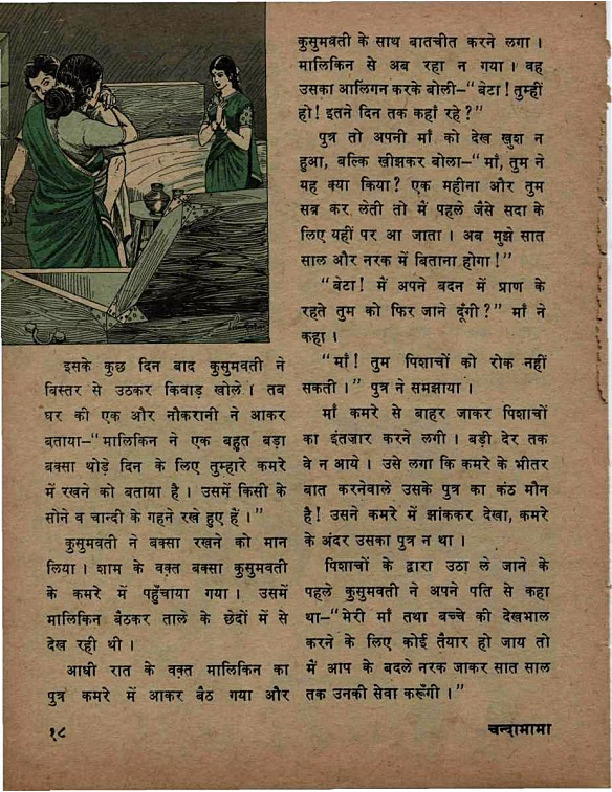 इसके कुछ दिन बाद कुसुमवती ने
बिस्तर से उठकर किवाड़ खोले। तब
घर की एक और नौकरानी ने आकर
बताया-"मालिकिन ने एक बहुत बड़ा
बक्सा थोड़े दिन के लिए तुम्हारे कमरे
में रखने को बताया है। उसमें किसी के
सोने व चान्दी के गहने रखे हुए हैं।"
कुसुमवती ने बक्सा रखने को मान
लिया। शाम के वक़्त बक्सा कुसुमवती
के कमरे में पहुँचाया गया। उसमें
मालिकिन बैठकर ताले के छेदों में से
देख रही थी।
आधी रात के वक़्त मालिकिन का
पुत्र कमरे में आकर बैठ गया और
कुसुमवती के साथ बातचीत करने लगा।
मालिकिन से अब रहा न गया। वह
उसका आलिंगन करके बोली-"बेटा! तुम्हीं
हो! इतने दिन तक कहाँ रहे?"
पुत्र तो अपनी माँ को देख खुश न
हुआ, बल्कि खीझकर बोला-"माँ, तुम ने
यह क्या किया? एक महीना और तुम
सब्र कर लेती तो मैं पहले जैसे सदा के
लिए यहीं पर आ जाता। अब मुझे सात
साल और नरक में बिताना होगा!"
"बेटा! मैं अपने बदन में प्राण के
रहते तुम को फिर जाने दूँगी?" माँ ने
कहा।
"माँ! तुम पिशाचों को रोक नहीं
सकती।" पुत्र ने समझाया।
माँ कमरे से बाहर जाकर पिशाचों
का इंतजार करने लगी। बड़ी देर तक
वे न आये। उसे लगा कि कमरे के भीतर
बात करनेवाले उसके पुत्र का कंठ मौन
है! उसने कमरे में झांककर देखा, कमरे
के अंदर उसका पुत्र न था।
पिशाचों के द्वारा उठा ले जाने के
पहले कुसुमवती ने अपने पति से कहा
था-"मेरी माँ तथा बच्चे की देखभाल
करने के लिए कोई तैयार हो जाय तो
मैं आप के बदले नरक जाकर सात साल
तक उनकी सेवा करूँगी।"
१८
चन्दामामा